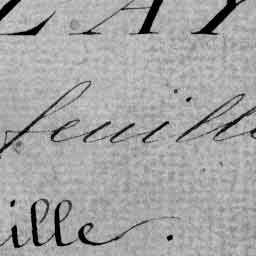 LAY
feuille
ille.